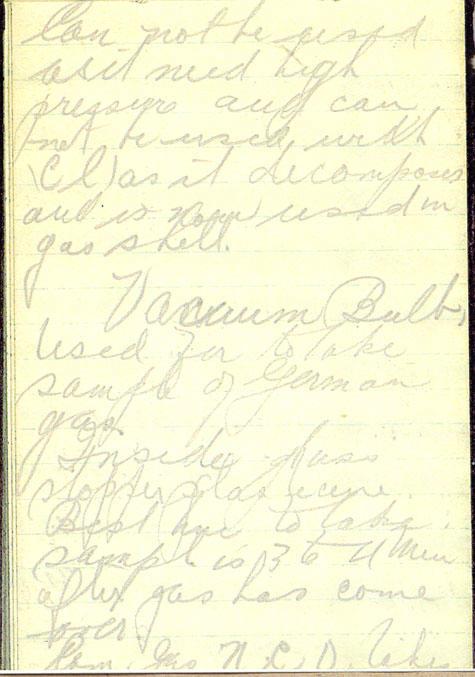 Can not be used
as it need high
pressure and can
not be used with
(Cl) as it decomposes
and is now used in
gas shell.
Vacuum Bulb,
Used for to take
sample of German
gas.
Inside glass
stopper glas
Best time to take
sample is 3 to 4 Min
after gas has come
over.
Com. Gas N.C.O. takes